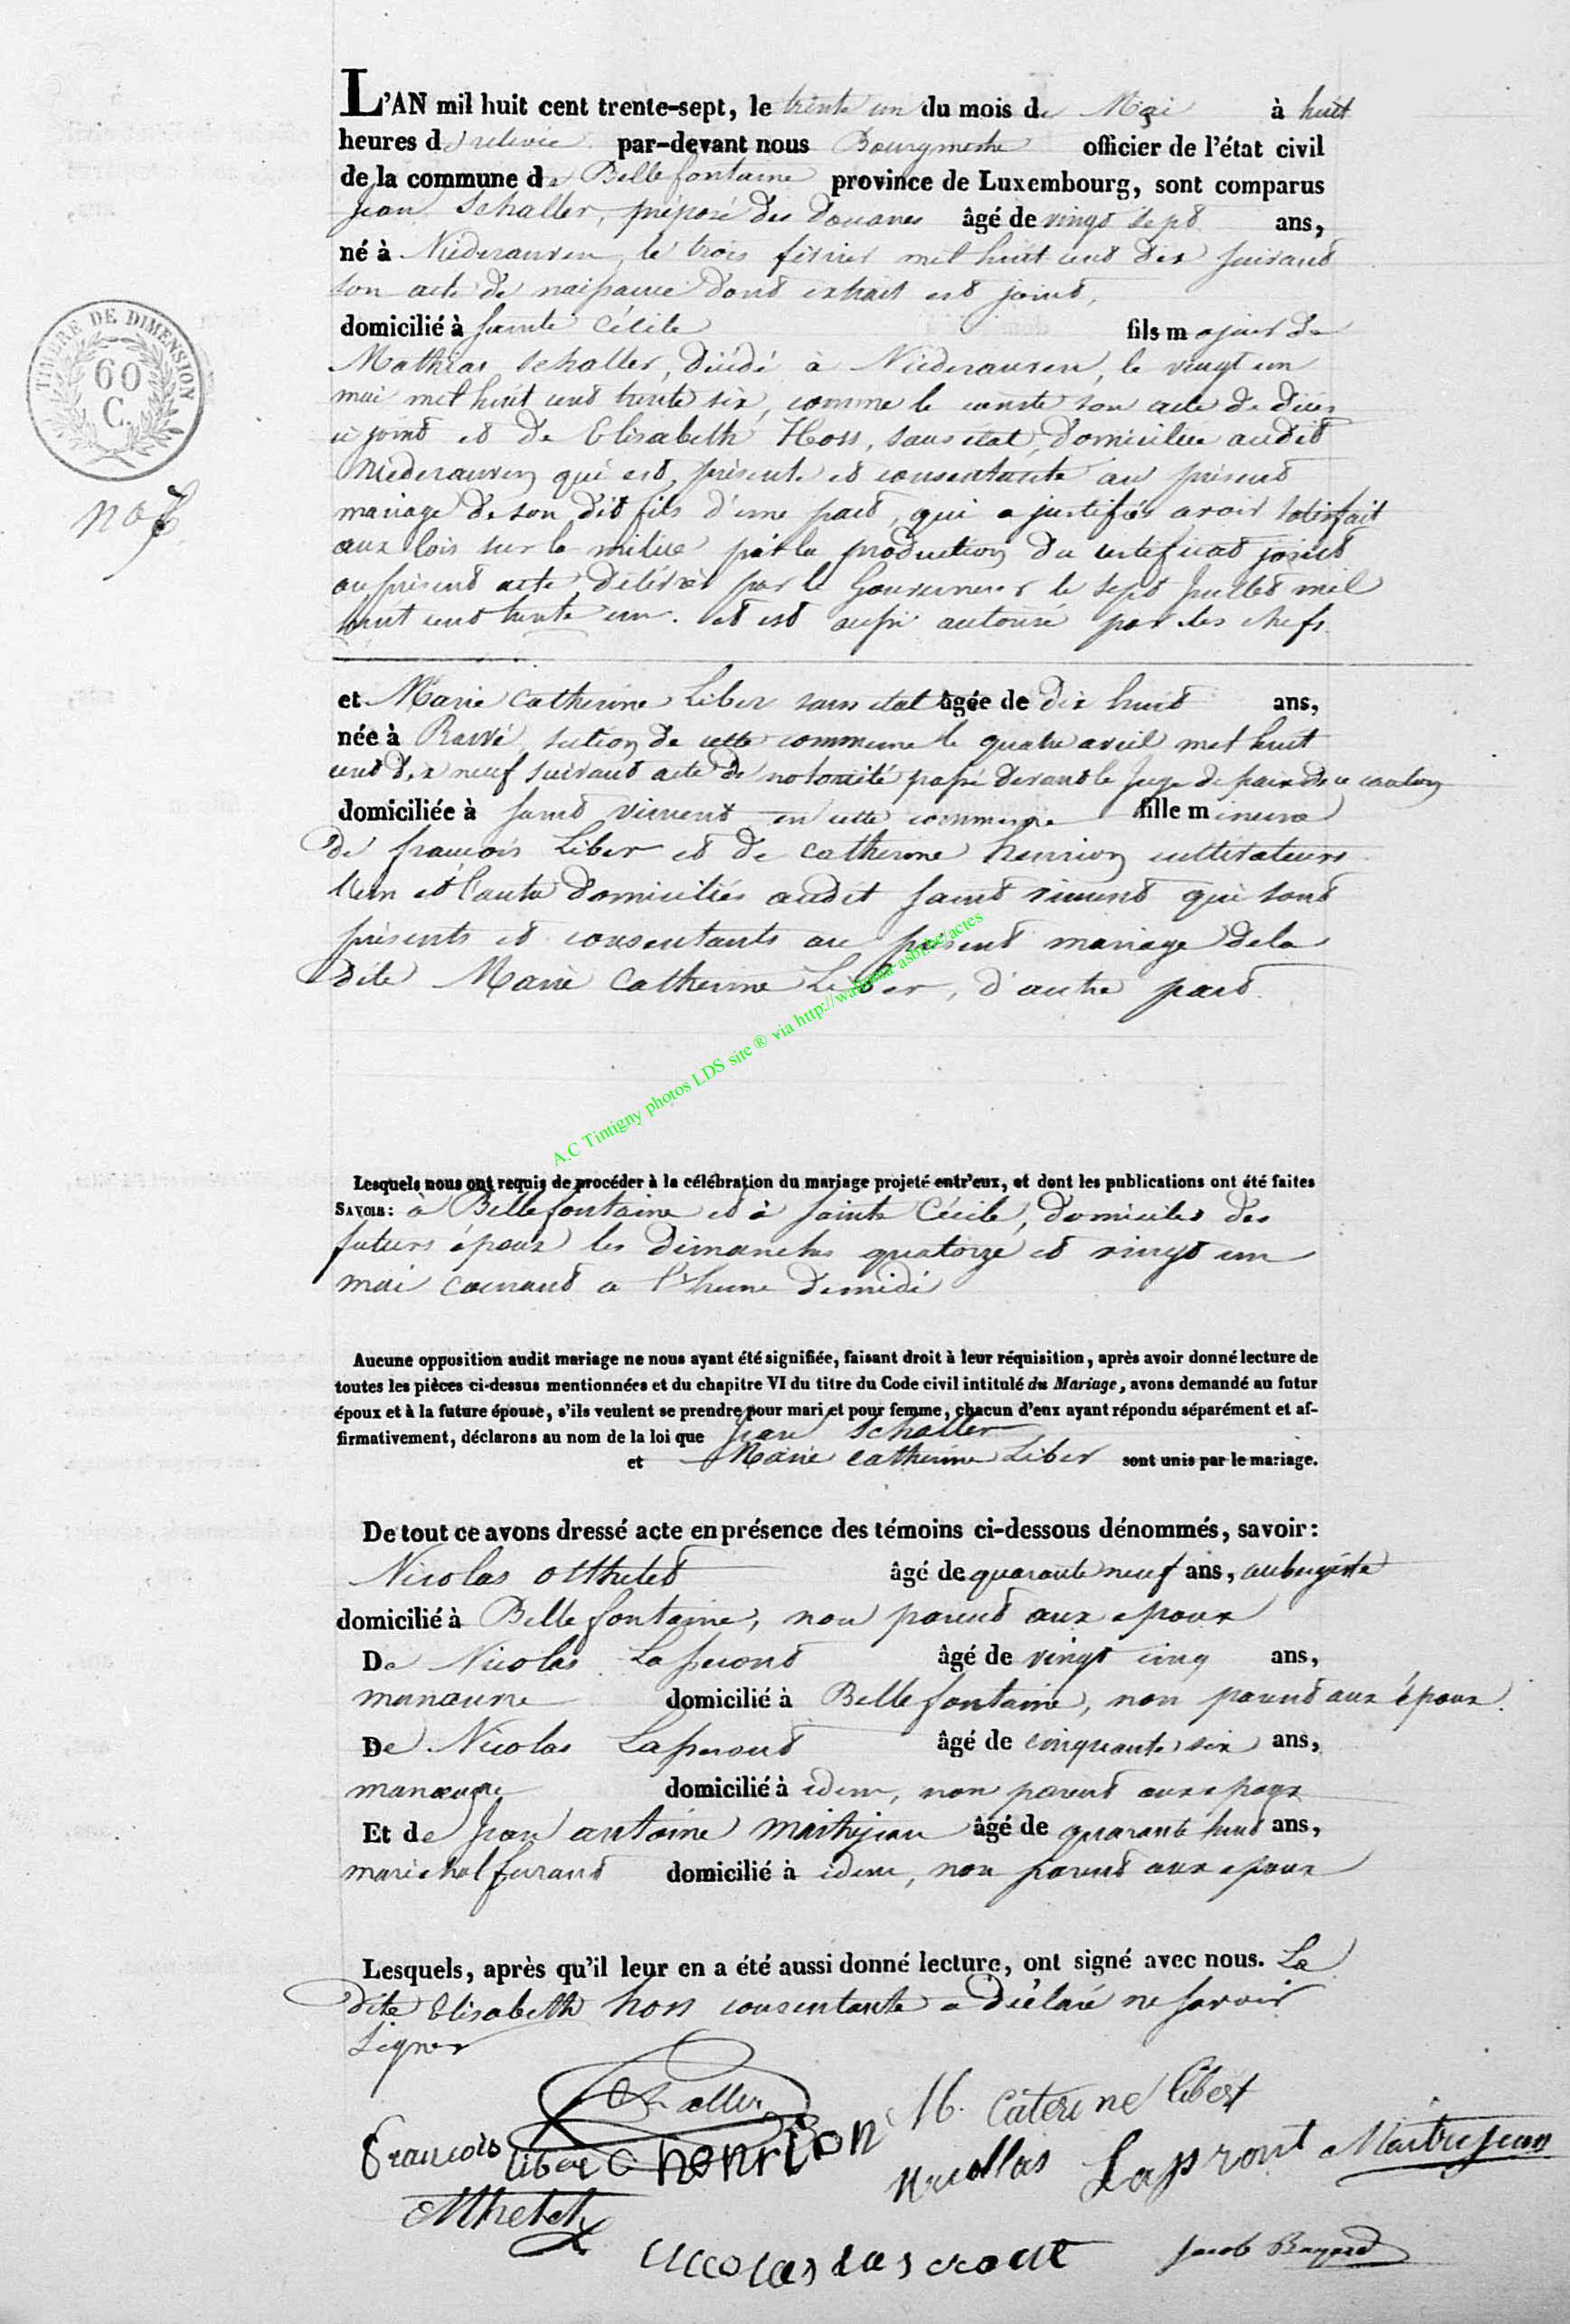 L'AN mil huit cent trente-sept, le trente un du mois de Mai à huit
heures de relevée par-devant nous Bourgmestre officier de l'état civil
de la commune de Bellefontaine province de Luxembourg, sont comparus
Jean Schaller, préposé des douanes âgé de vingt sept ans,
né à Niederanven, le trois février mil huit cent dix suivant
son acte de naissance dont extrait est joint,
domicilié à Sainte Cécile fils majeur de
Mathias Schaller, décédé à Niederanven, le vingt un
mai mil huit cent trente six, comme le conste son acte de décès
ci joint et de Elisabeth Hoss, sans état, domiciliée audit
Niederanven qui est présente et consentante au présent
mariage de son dit fils d'une part, qui a justifié avoir satisfait
aux lois sur la milice par la production du certificat joint
au présent acte, délivré par le Gouverneur le sept juillet mil
huit cent trente un. et est aussi autorisé par les chefs
et Marie Catherine Liber sans état âgée de dix huit ans,
née à section de cette commune le quatre avril mil huit
cent dix neuf suivant acte de notoriété passé devant le juge de paix de ce canton
domiciliée à Saint Vincent en cette commune fille mineure
de françois Liber et de Catherine henrion cultivateurs
l'un et l'autre domiciliés audit Saint Vincent qui sont
présents et consentants au présent mariage de la
dite Marie Catherine Liber, d'autre part
A.C Tintigny photos LDS site ® via http://wallonia-asbl.be/actes
Lesquels nous ont requis de procéder à la célébration du mariage projeté entr'eux, et dont les publications ont été faites
SAVOIR: à Bellefontaine et à Sainte Cécile, domiciles des
futurs époux les dimanches quatorze et vingt un
mai courant a l'heure de midi
Aucune opposition audit mariage ne nous ayant été signifiée, faisant droit à leur réquisition, après avoir donné lecture de
toutes les pièces ci-dessus mentionnées et du chapitre VI du titre du Code civil intitulé du Mariage, avons demandé au futur
époux et à la future épouse, s'ils veulent se prendre pour mari et pour femme, chacun d'eux ayant répondu séparément et af-
firmativement, déclarons au nom de la loi que Jean Schaller
et Marie Catherine Liber sont unis par le mariage.
De tout ce avons dressé acte en présence des témoins ci-dessous dénommés, savoir:
Nicolas Otthelet âgé de quarante neuf ans, aubergiste
domicilié à Bellefontaine, non parent aux epoux
De Nicolas Laproust âgé de vingt cinq ans,
manœuvre domicilié à Bellefontaine, non parent aux époux.
De Nicolas Laproust âgé de cinquante six ans,
manœuvre domicilié à idem, non parent aux epoux
Et de Jean antoine maitrejean âgé de quarante huit ans,
maréchal ferrant domicilié à idem, non parent aux epoux
Lesquels, après qu'il leur en a été aussi donné lecture, ont signé avec nous. La
dite Elisabeth hoss consentante a déclaré ne savoir
signer
Schaller M. Caterine libert
françois liber C henrion Nicollas Lapront Maitrejean
Othelet
nicolas lasprout Jacob Bayard
TIMBRE DE DIMENSION
60
C.
no 7